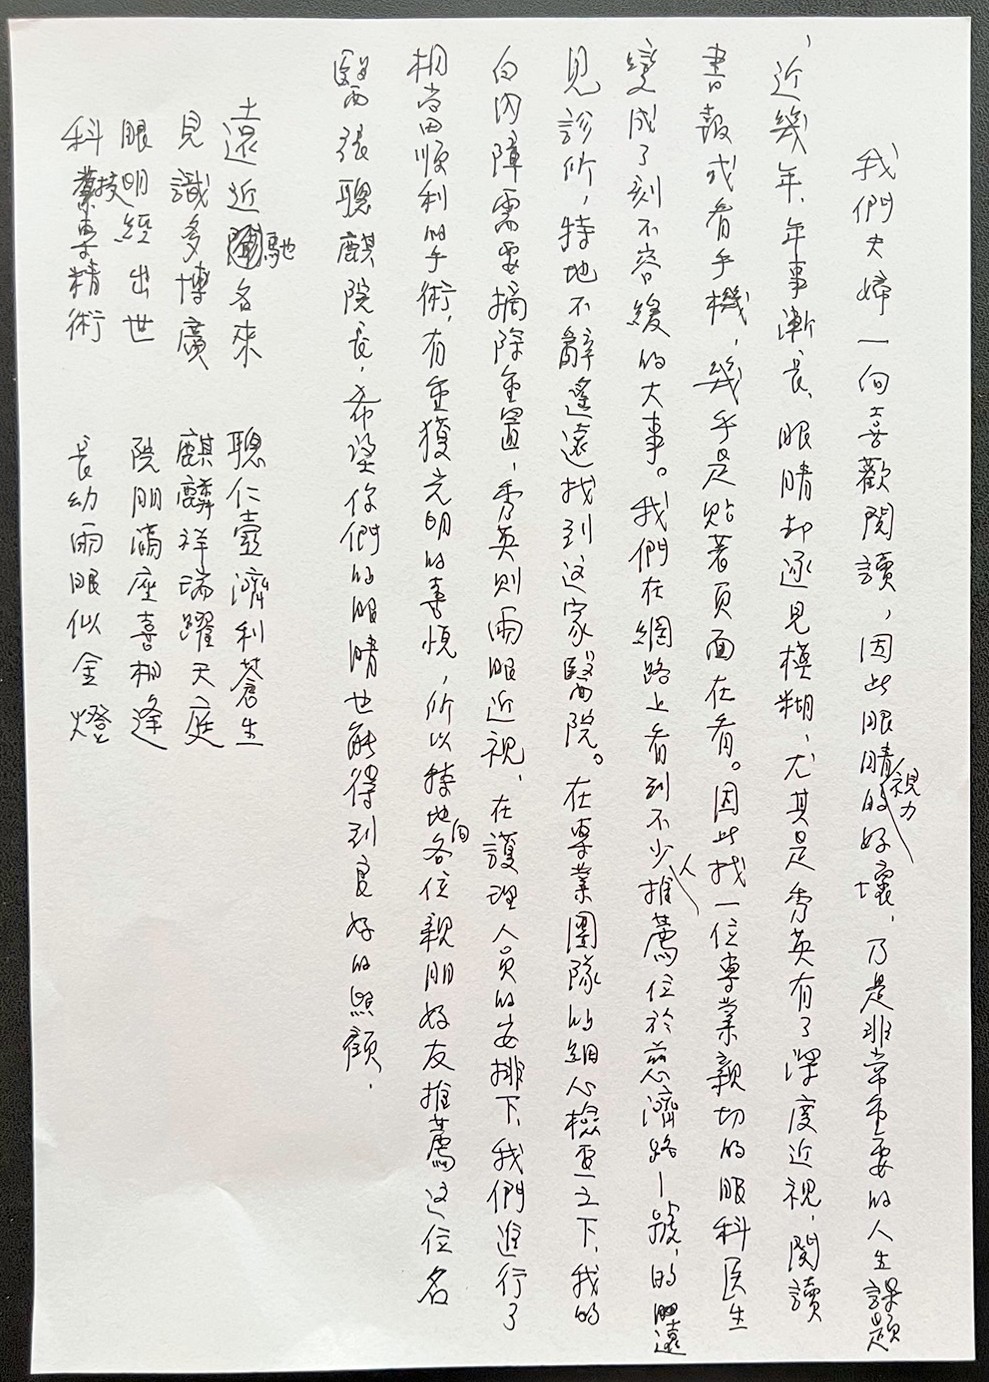 我們夫婦一向喜歡閱讀，因此眼睛視力的好壞，乃是非常重要的人生課題
，近幾年、年事漸長、眼睛却逐見模糊、尤其是秀英有了深度近視，閱讀
書報或看手機，幾乎是貼著頁面在看。因此找一位專業親切的眼科医生
變成了刻不容緩的大事。我們在網路上看到不少人推薦位於慈濟路一號，的遠
見診所，特地不辭遙遠找到这家醫院。在專業團隊的細心檢查之下，我的
白內障需要摘除重置，秀英則兩眼近視、在護理人員的安排下、我們進行了
相當順利的手術，有重獲光明的喜悅，所以特地向各位親朋好友推薦这位名
醫張聰麒院長，希望你們的眼睛也能得到良好的照顧．
遠近馳名來　聰仁壺濟利蒼生
見識多博廣　麒麟祥瑞躍天庭
眼明經出世　院朋滿座喜相逢
科技專精術　長幼兩眼似金燈